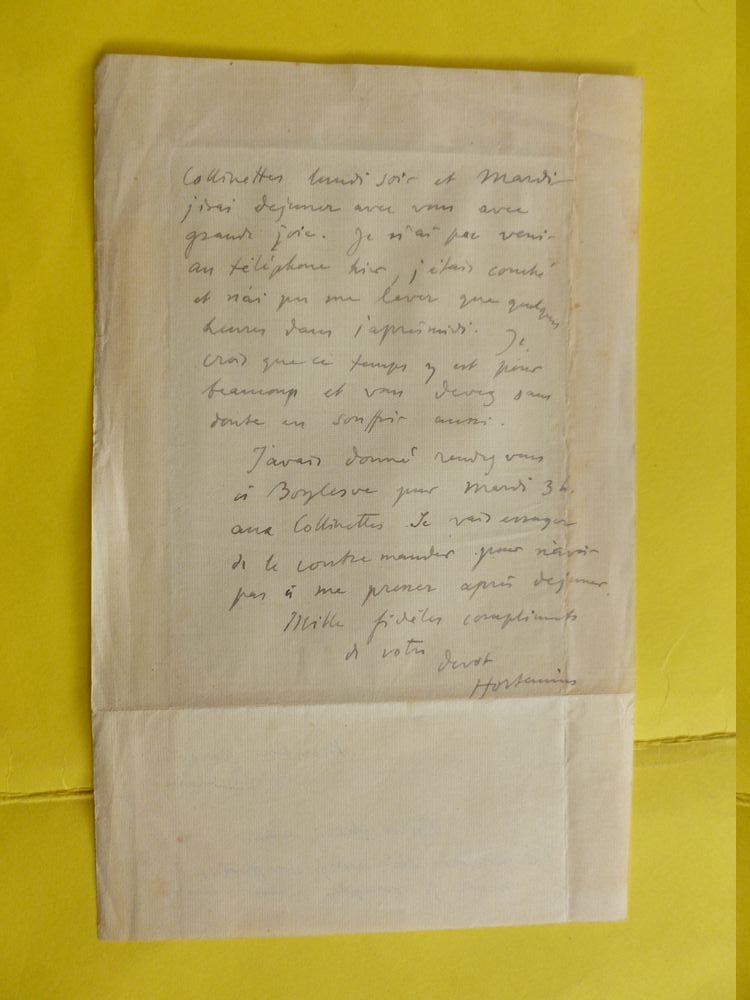 Collinettes lundi soir et Mardi
j'irai dejeuner avec vous avec
grande joie. Je n'ai pas venir
au téléphone hier, j'étais couché
et n'ai pu me lever que quelques
heures dans l'aprèsmidi. Je
crois que ce temps y est pour
beaucoup et vous devez sans
doute en souffrir aussi.
J'avais donné rendez vous
à Boylesve pour Mardi 3h.
aux Collinettes. Je vais essayer
de le contremander pour n'avoir
pas à me presser après dejeuner.
Mille fidèles compliments
de votre devot